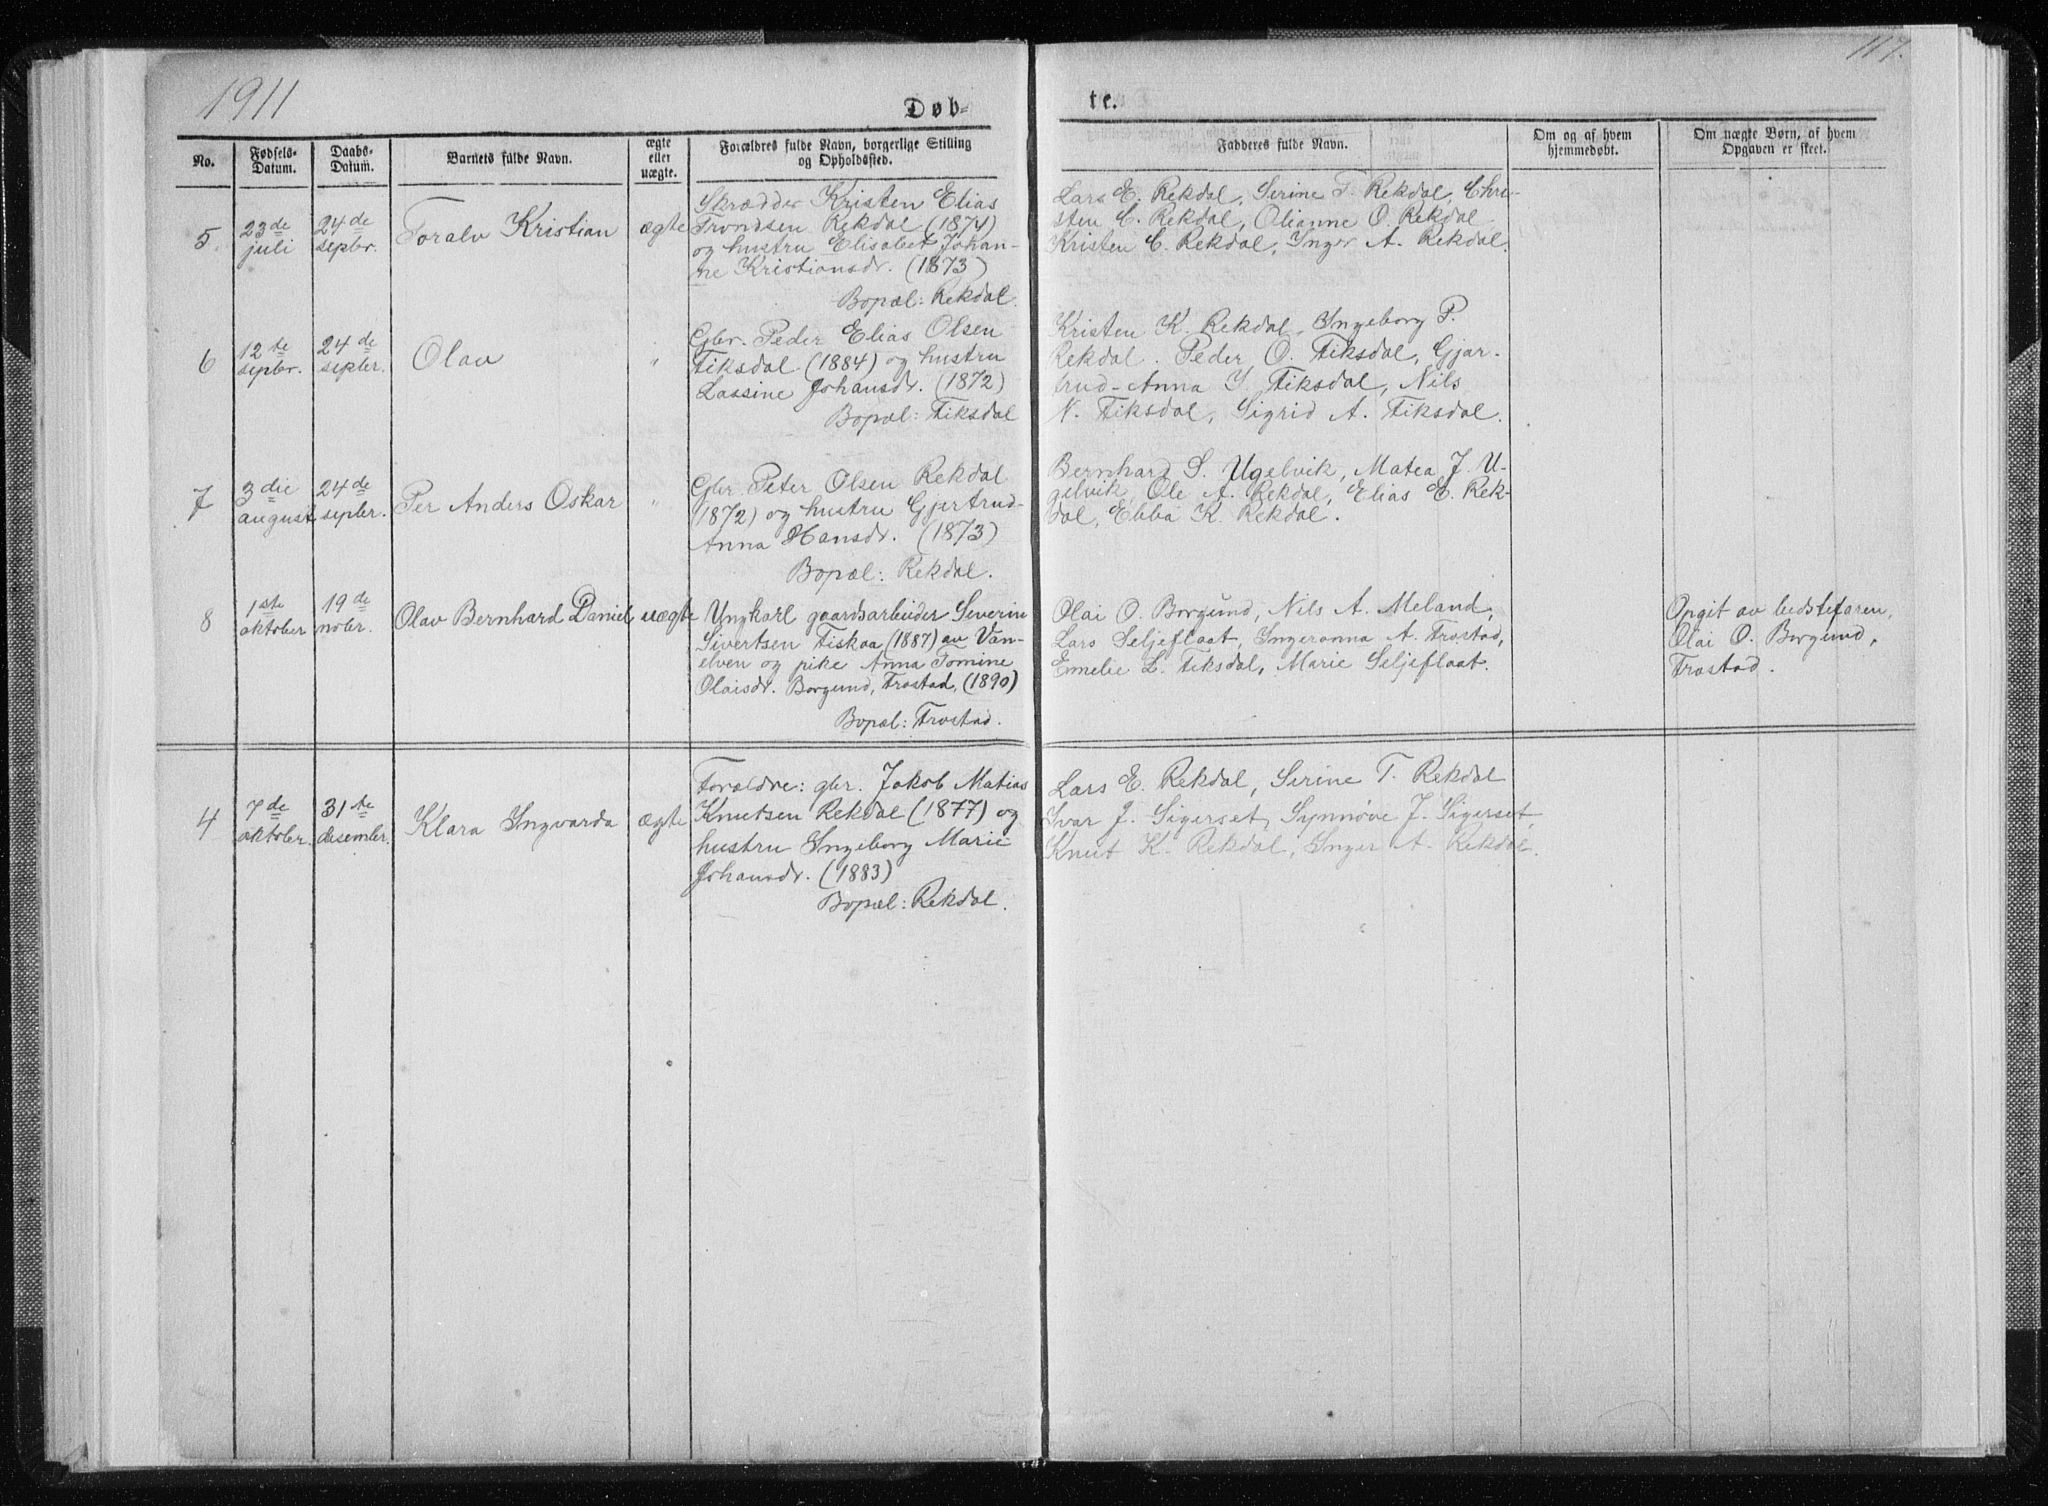 1911
117.
Døb-
te.
No.
Fødsels-
Datum.
Daabs-
Datum.
Barnets fulde Navn.
ægte
eller
uægte.
Forældres fulde Navn, borgerlige Stilling
og Opholdssted.
Fadderes fulde Navn.
Om og af hvem
hjemmedøbt.
Om uægte Børn, af hvem
Opgaven er skeet.
5
23de
juli
24de
sepbr.
Toralv Kristian
ægte
Skrædder Kristen Elias
Trondsen Rekdal (1874)
og hustru Elisabet Johan-
ne Kristiansdr. (1873)
Bopæl: Rekdal.
Lars E. Rekdal, Serine T. Rekdal, Chri-
sten C. Rekdal, Olianne O. Rekdal
Kristen C. Rekdal, Inger A. Rekdal.
6
12te
sepbr.
24de
sepbr.
Olav
"
Gbr. Peder Elias Olsen
Tiksdal (1884) og hustru
Lassine Johansdr. (1872)
Bopæl: Tiksdal
Kristen K. Rekdal, Ingeborg P.
Rekdal. Peder O. Tiksdal, Gjar-
trud-Anna I. Tiksdal, Nils
N. Tiksdal, Sigrid A. Tiksdal.
7
3die
august
24de
sepbr.
Per Anders Oskar
"
Gbr. Peter Olsen Rekdal
(1872) og hustru Gjertrud-
Anna Hansdr. (1873)
Bopæl: Rekdal.
Bernhard S. Ugelvik, Matea J. U-
gelvik, Ole A. Rekdal, Elias E. Rek-
dal, Ebba K. Rekdal.
8
1ste
oktober
19de
nobr.
Olav Bernhard Daniel
uægte
Ungkarl gaardsarbeider Severin
Sivertsen Fiskaa (1887) av Van-
elven og pike Anna Tomine
Olaisdr. Borgund, Frostad, (1890)
Bopæl: Frostad.
Olai O. Borgund, Nils A. Meland,
Lars Seljeflaat, Ingeranna A. Frostad,
Emelie L. Tiksdal, Marie Seljeflaat.
Opgit av bedstefaren,
Olai O. Borgund,
Frostad.
4
7de
oktober.
31te
desembr.
Klara Ingvarda
ægte
Forældre: gbr. Jakob Matias
Knutsen Rekdal (1877) og
hustru Ingeborg Marie
Johansdr. (1883)
Bopæl: Rekdal.
Lars E. Rekdal, Serine T. Rekdal
Ivar J. Sigerset, Synnøve J. Sigerset,
Knut K. Rekdal, Inger A. Rekdal.